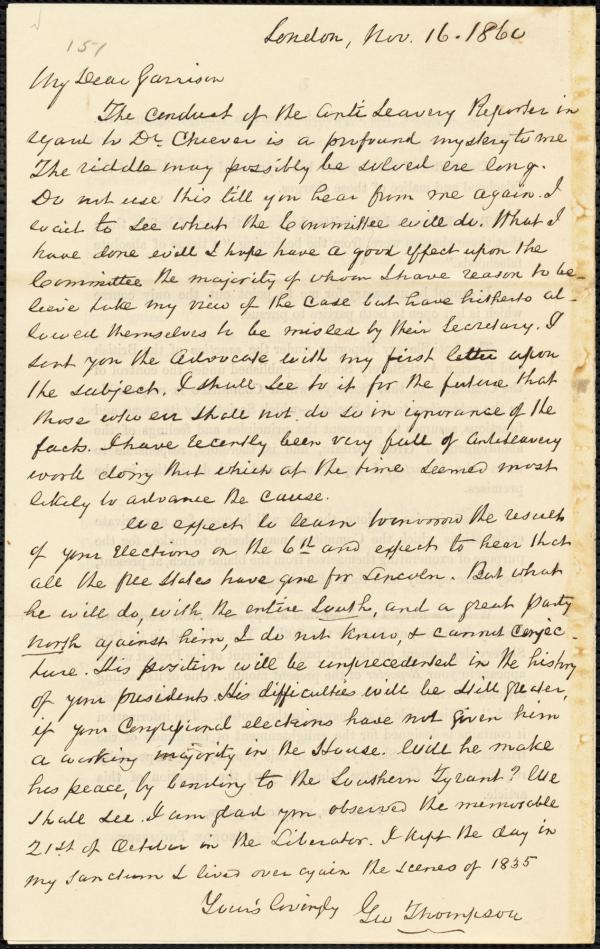 151
London, Nov. 16. 1860
My Dear Garrison
The conduct of the Anti Slavery Reporter in
regard to Dr. Cheever is a profound mystery to me
The riddle may possibly be solved ere long.
Do not use this till you hear from me again. I
wait to see what the Committee will do. What I
have done will I hope have a good effect upon the
Committee the majority of whom I have reason to be-
lieve take my view of the case but have hitherto al-
lowed themselves to be misled by their Secretary. I
sent you the Advocate with my first letter upon
the subject. I shall see to it for the future that
those who err shall not do so in ignorance of the
facts. I have recently been very full of Antislavery
work doing that which at the time seemed most
likely to advance the cause.
We expect to learn tomorrow the result
of your elections on the 6th and expect to hear that
all the free States have gone for Lincoln. But what
he will do, with the entire South, and a great party
North against him, I do not know, & cannot conjec-
ture. His position will be unprecedented in the history
of your presidents. His difficulties will be still greater,
if your Congressional elections have not given him
a working majority in the House. Will he make
his peace, by bending to the Southern Tyrant? We
shall see. I am glad you observed the memorable
21st of October in the Liberator. I kept the day in
my sanctum & lived over again the scenes of 1835
Yours lovingly
Geo Thompson